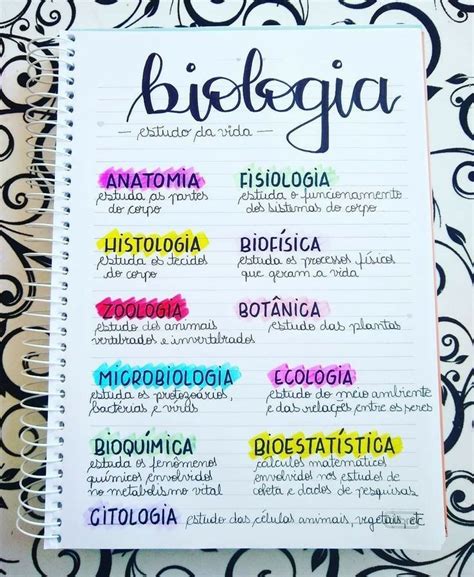 biologia
— estudo da vida —
ANATOMIA
estuda as partes
do corpo
FISIOLOGIA
estuda o funcionamento
dos sistemas do corpo
HISTOLOGIA
estuda os tecidos
do corpo
BIOFÍSICA
estuda os processos físicos
que geram a vida
ZOOLOGIA
estudo dos animais
vertebrados e invertebrados
BOTÂNICA
estudo das plantas
MICROBIOLOGIA
estuda os protozoários,
bactérias e vírus
ECOLOGIA
estudo do meio ambiente
e das relações entre os seres
BIOQUÍMICA
estuda os fenômenos
químicos envolvidos
no metabolismo vital
BIOESTATÍSTICA
cálculos matemáticos
envolvidos nos estudos de
coleta e dados de pesquisas.
CITOLOGIA estudo das células animais, vegetais, etc